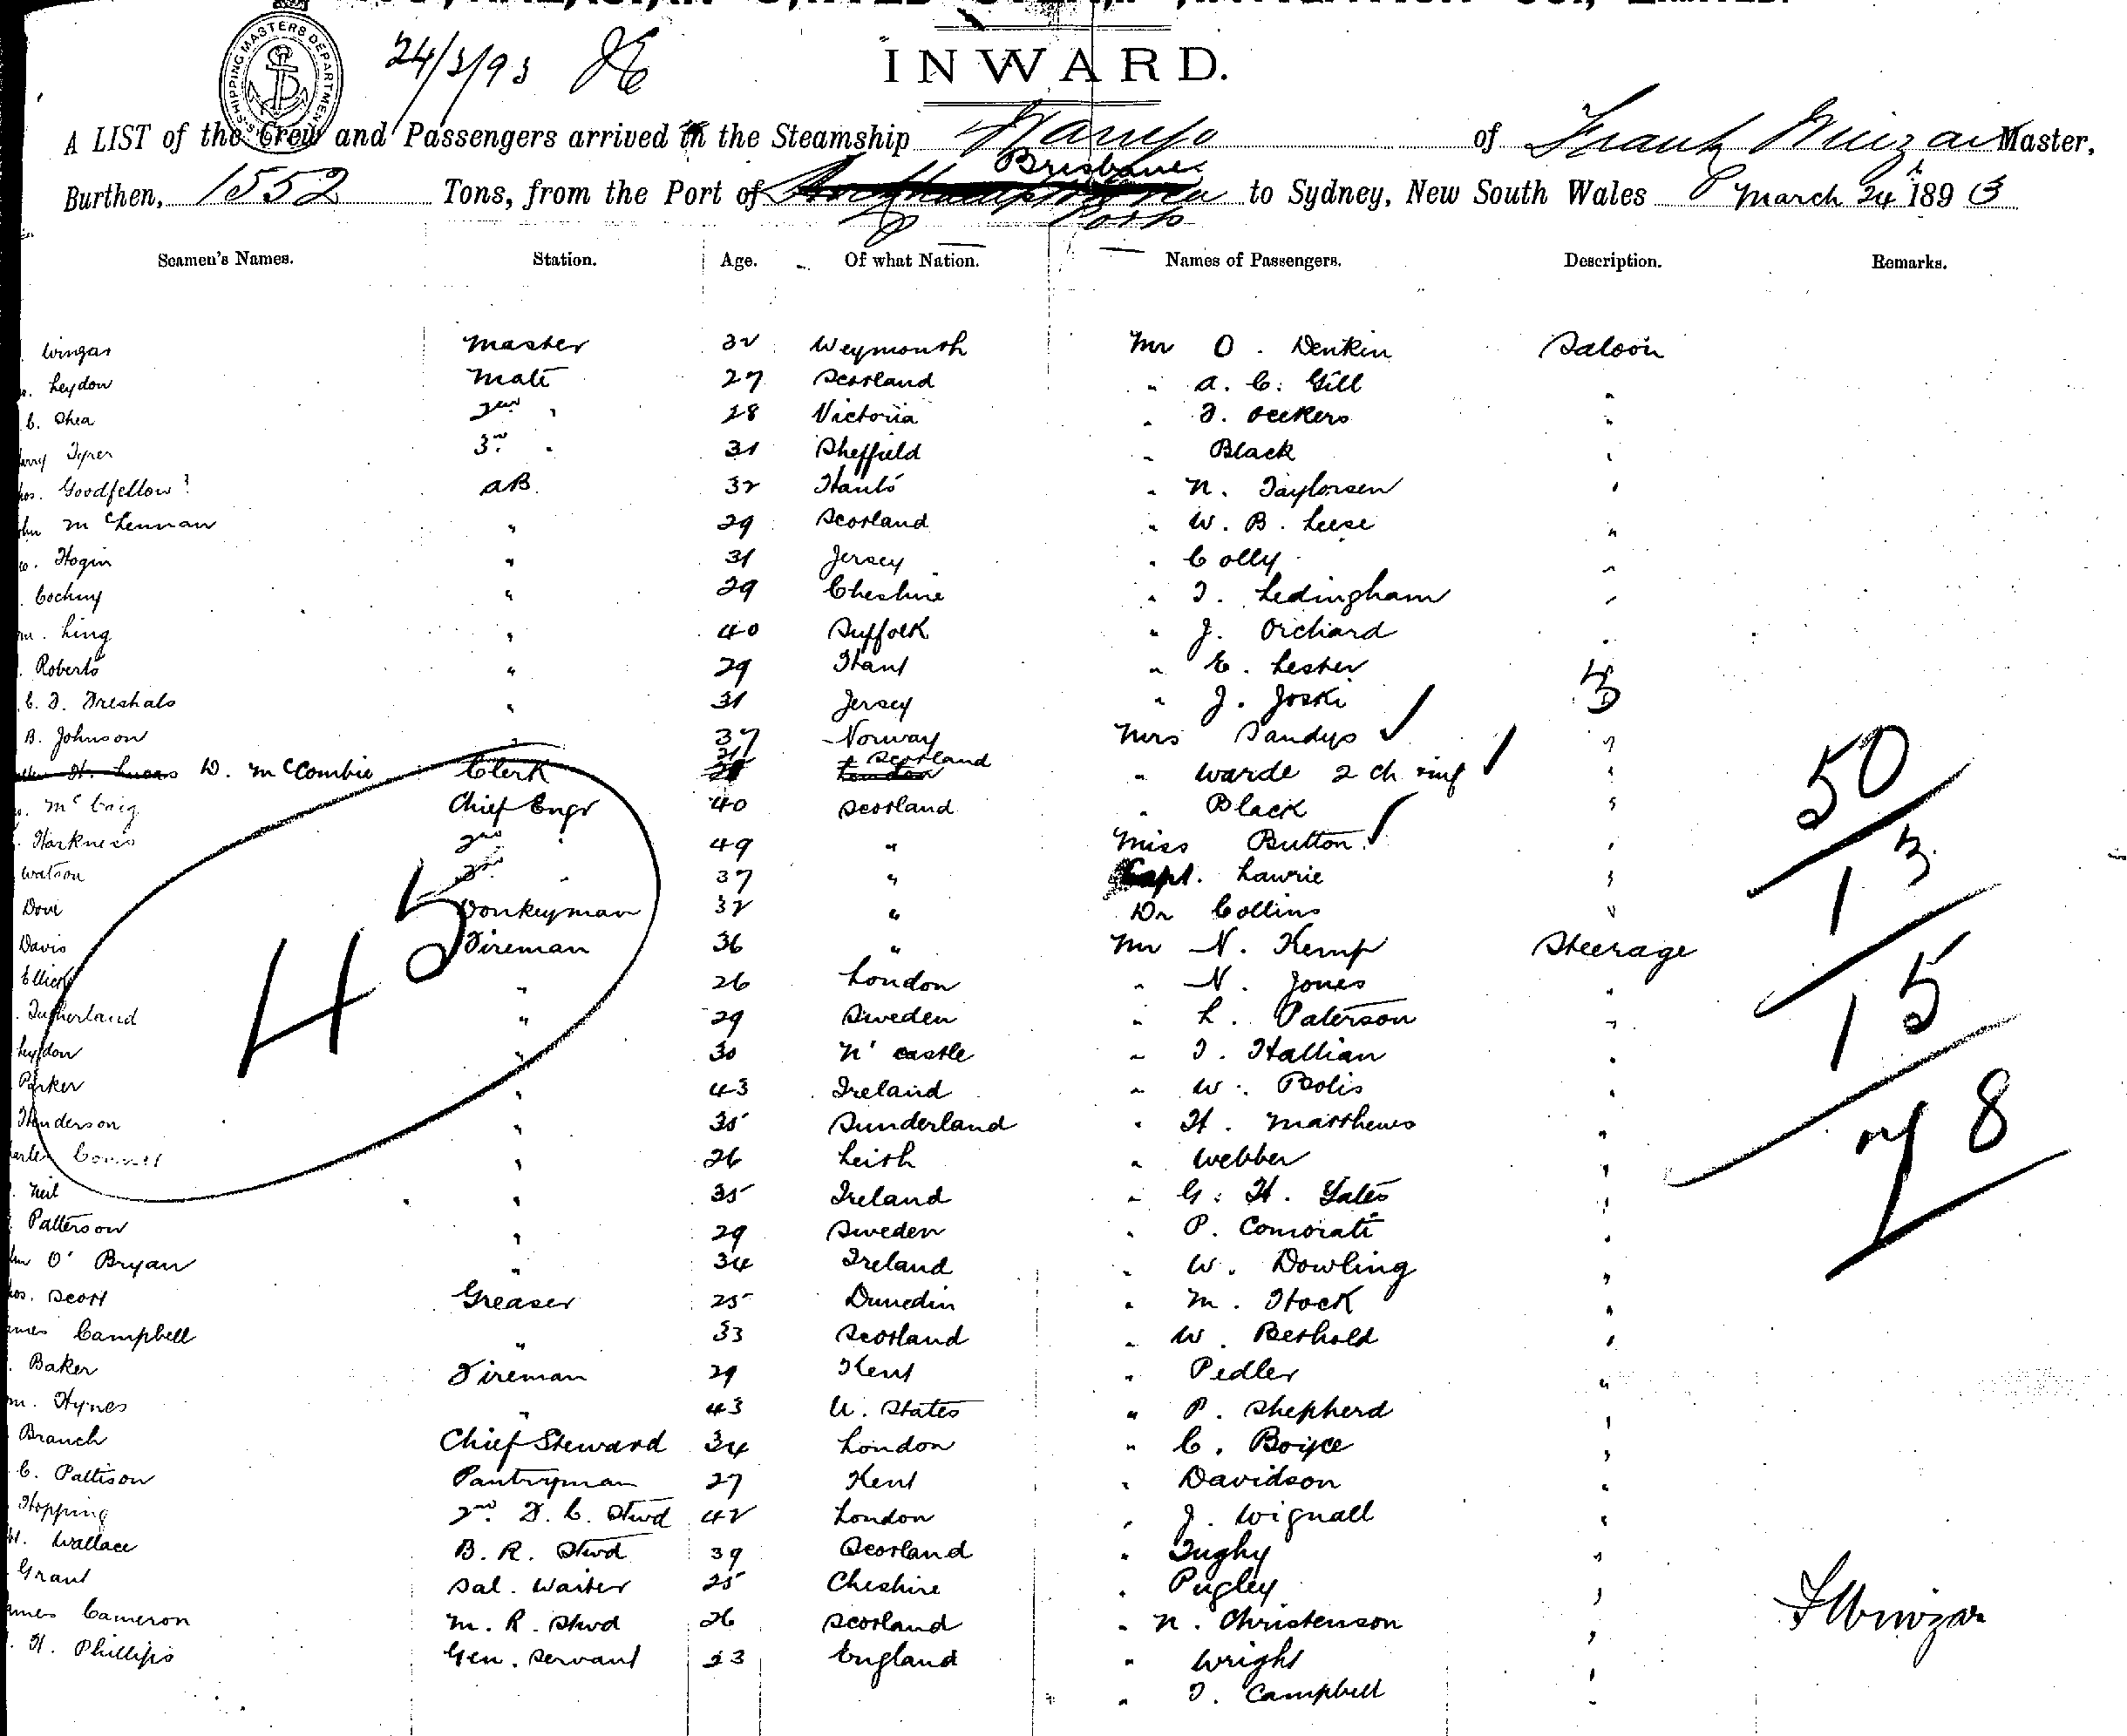 24/3/93
INWARD.
SHIPPING MASTERS DEPARTMENT
A LIST of the Crew and Passengers arrived in the Steamship of Frank Master,
Brisbane
Burthen, 1552 Tons, from the Port of to Sydney, New South Wales March 24 1893
Ports
Seamen's Names. Station. Age. Of what Nation. Names of Passengers. Description. Remarks.
Master 32 Weymouth Mr O. Denkin Saloon
Leydon Mate 27 Scotland " A. C. Gill "
C. Shea 2nd " 28 Victoria " "
Tyrer 3rd " 31 Sheffield " Black "
Goodfellow AB 32 Hants " N. Taylorsen "
McLennan " 29 Scotland " W. B. Leese "
Hogin " 31 Jersey " Colly "
" 29 Cheshire " T. Ledingham "
Ling " 40 Suffolk " J. Orchard "
Roberts " 29 Hant " E. Lester "
C. T. Treshals " 31 Jersey " J. Joski
B. Johnson " 37 Norway Mrs Sandys "
D. McCombie Clerk Scotland " Warde 2 ch inf "
Chief Engr 40 Scotland " Black "
Harkness 2nd " 49 " Miss Button "
Watson 3rd " 37 " Capt. Lawrie "
Dove Donkeyman 32 " Dr Collins "
Davis Fireman 36 " Mr N. Kemp Steerage
" 26 London " N. Jones "
Sutherland " 29 Sweden " L. Paterson "
Leydon " 30 N'castle " T. Hallian "
Parker " 43 Ireland " W. "
Henderson " 35 Sunderland " H. Matthews "
" 26 Leith " Webber "
Neil " 35 Ireland " G. H. Yates "
Patterson " 29 Sweden " P. Comorati "
O'Bryan " 34 Ireland " W. Dowling "
Scott Greaser 25 Dunedin " M. Hock "
Campbell " 33 Scotland " W. Berhold "
Baker Fireman 29 Kent " Pedler "
Hynes " 43 U. States " P. Shepherd "
Branch Chief Steward 34 London " C. Boyce "
C. Pattison Pantryman 27 Kent " Davidson "
Hopping 2nd S. C. Stwd 42 London " J. Wignall "
Wallace B. R. Stwd 39 Scotland " Tughy "
Grant Sal. Waiter 25 Cheshire " Pugley "
Cameron M. R. Stwd 26 Scotland " N. Christenson "
H. Phillips Gen. Servant 23 England " Wright "
" T. Campbell "
45
50
13
15
78